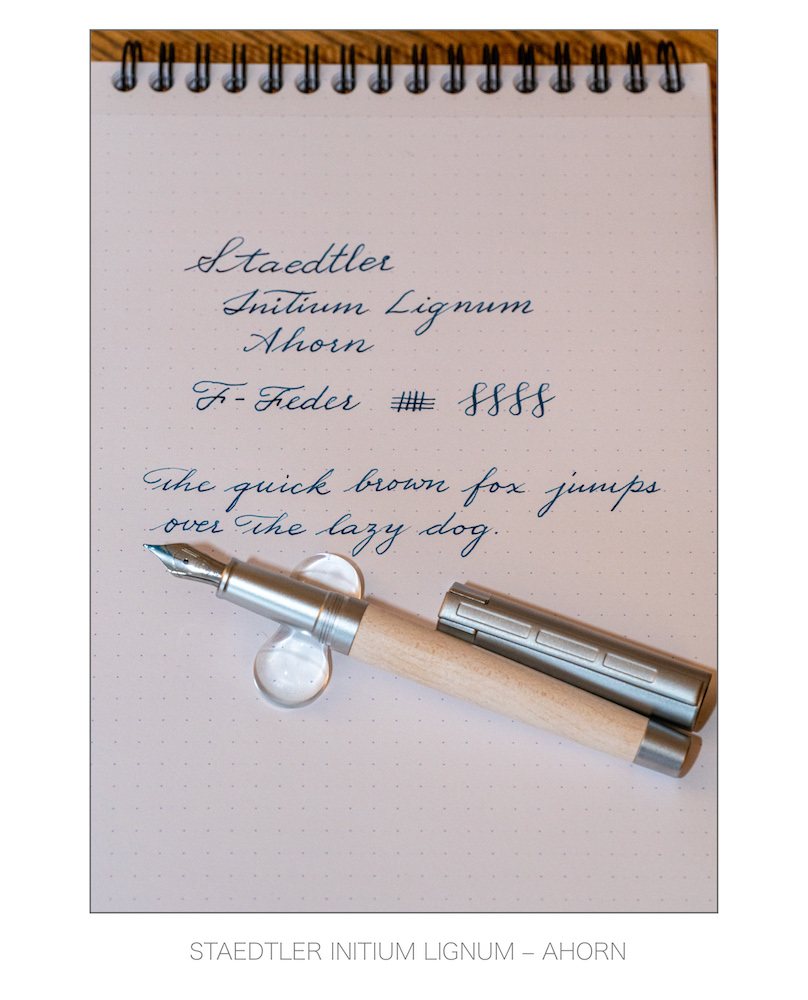 Staedtler
Initium Lignum
Ahorn
F-Feder
The quick brown fox jumps
over the lazy dog.
STAEDTLER INITIUM LIGNUM – AHORN